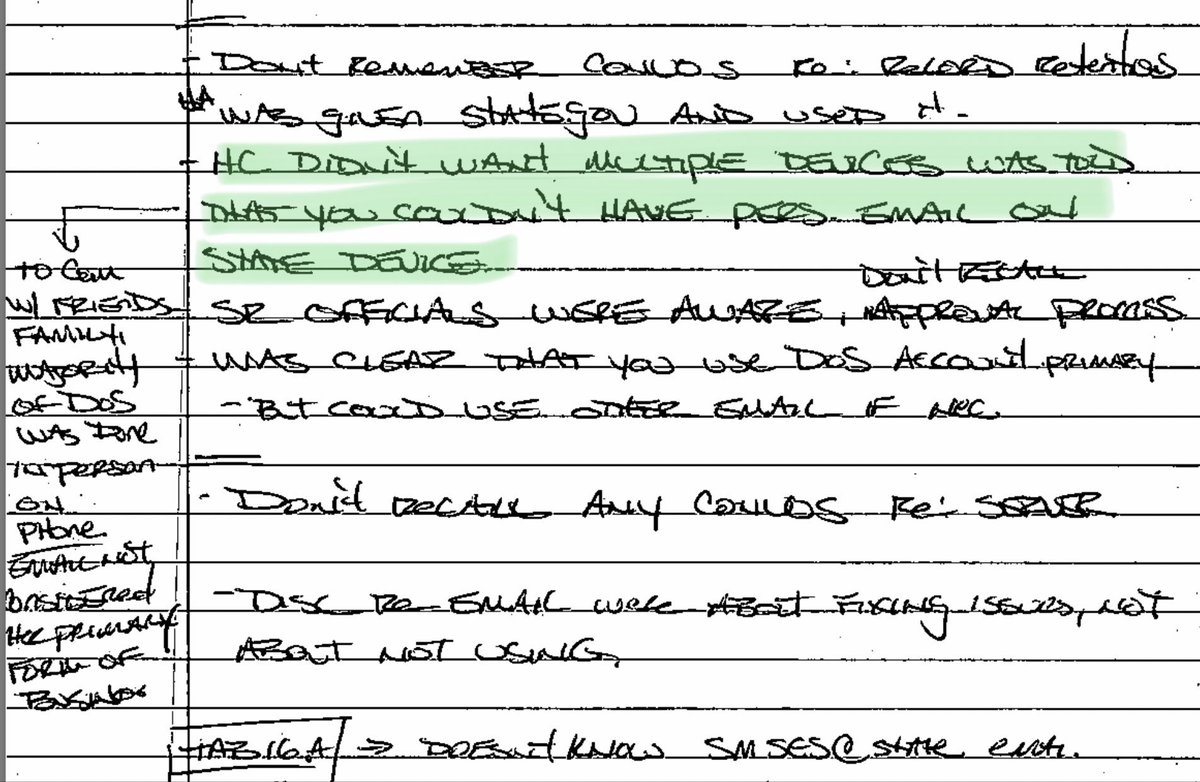 - Don't Remember CONVOS Re: Record Retention
HA WAS given STATE.gov AND USED it.
- HC DIDN'T WANT MULTIPLE DEVICES WAS TOLD
THAT YOU COULDN'T HAVE PERS. EMAIL ON
STATE DEVICE
DON'T RECALL
SR OFFICIALS WERE AWARE, APPROVAL PROCESS
- WAS CLEAR THAT YOU USE DOS ACCOUNT primary
- BUT COULD USE OTHER EMAIL IF NEC.
- DON'T RECALL ANY CONVOS Re: SERVER
- DISC RE EMAIL were ABOUT FIXING ISSUES, NOT
ABOUT NOT USING,
TAB 16.A => DOESN'T KNOW SMSGS@state
TO Com
W/ FRIENDS
FAMILY,
MAJORITY
OF DOS
WAS Done
in person
ON
PHONE
EMAIL NOT
CONSIDERED
Her PRIMARY
FORM OF
BUSINESS